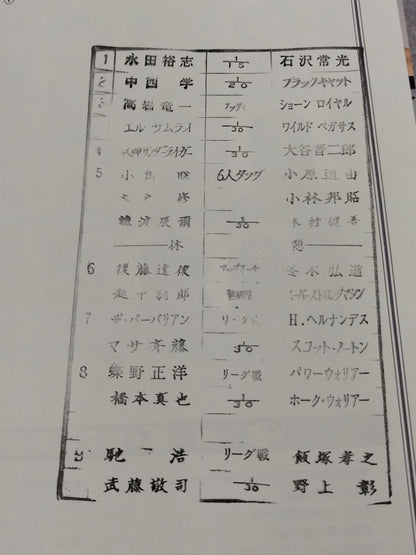 1 永田裕志 1/15 石沢常光
2 中西学 1/20 ブラックキャット
3 高岩竜一 タッグ ショーン ロイヤル
エル サムライ 1/30 ワイルド ペガサス
4 サンダーライガー 1/30 大谷晋二郎
5 小島聡 6人タッグ 小原道由
修 小林邦昭
越波辰爾 1/30 木村健吾
休 憩
6 後藤達俊 タッグマッチ 冬木弘道
越中詩郎 スーパーストロングマシン
7 ザ・バーバリアン リーグ戦 H.ヘルナンデス
マサ斉藤 1/30 スコット・ノートン
8 蝶野正洋 リーグ戦 パワーウォリアー
橋本真也 1/30 ホーク・ウォリアー
馳 浩 リーグ戦 飯塚孝之
武藤敬司 1/30 野上 彰